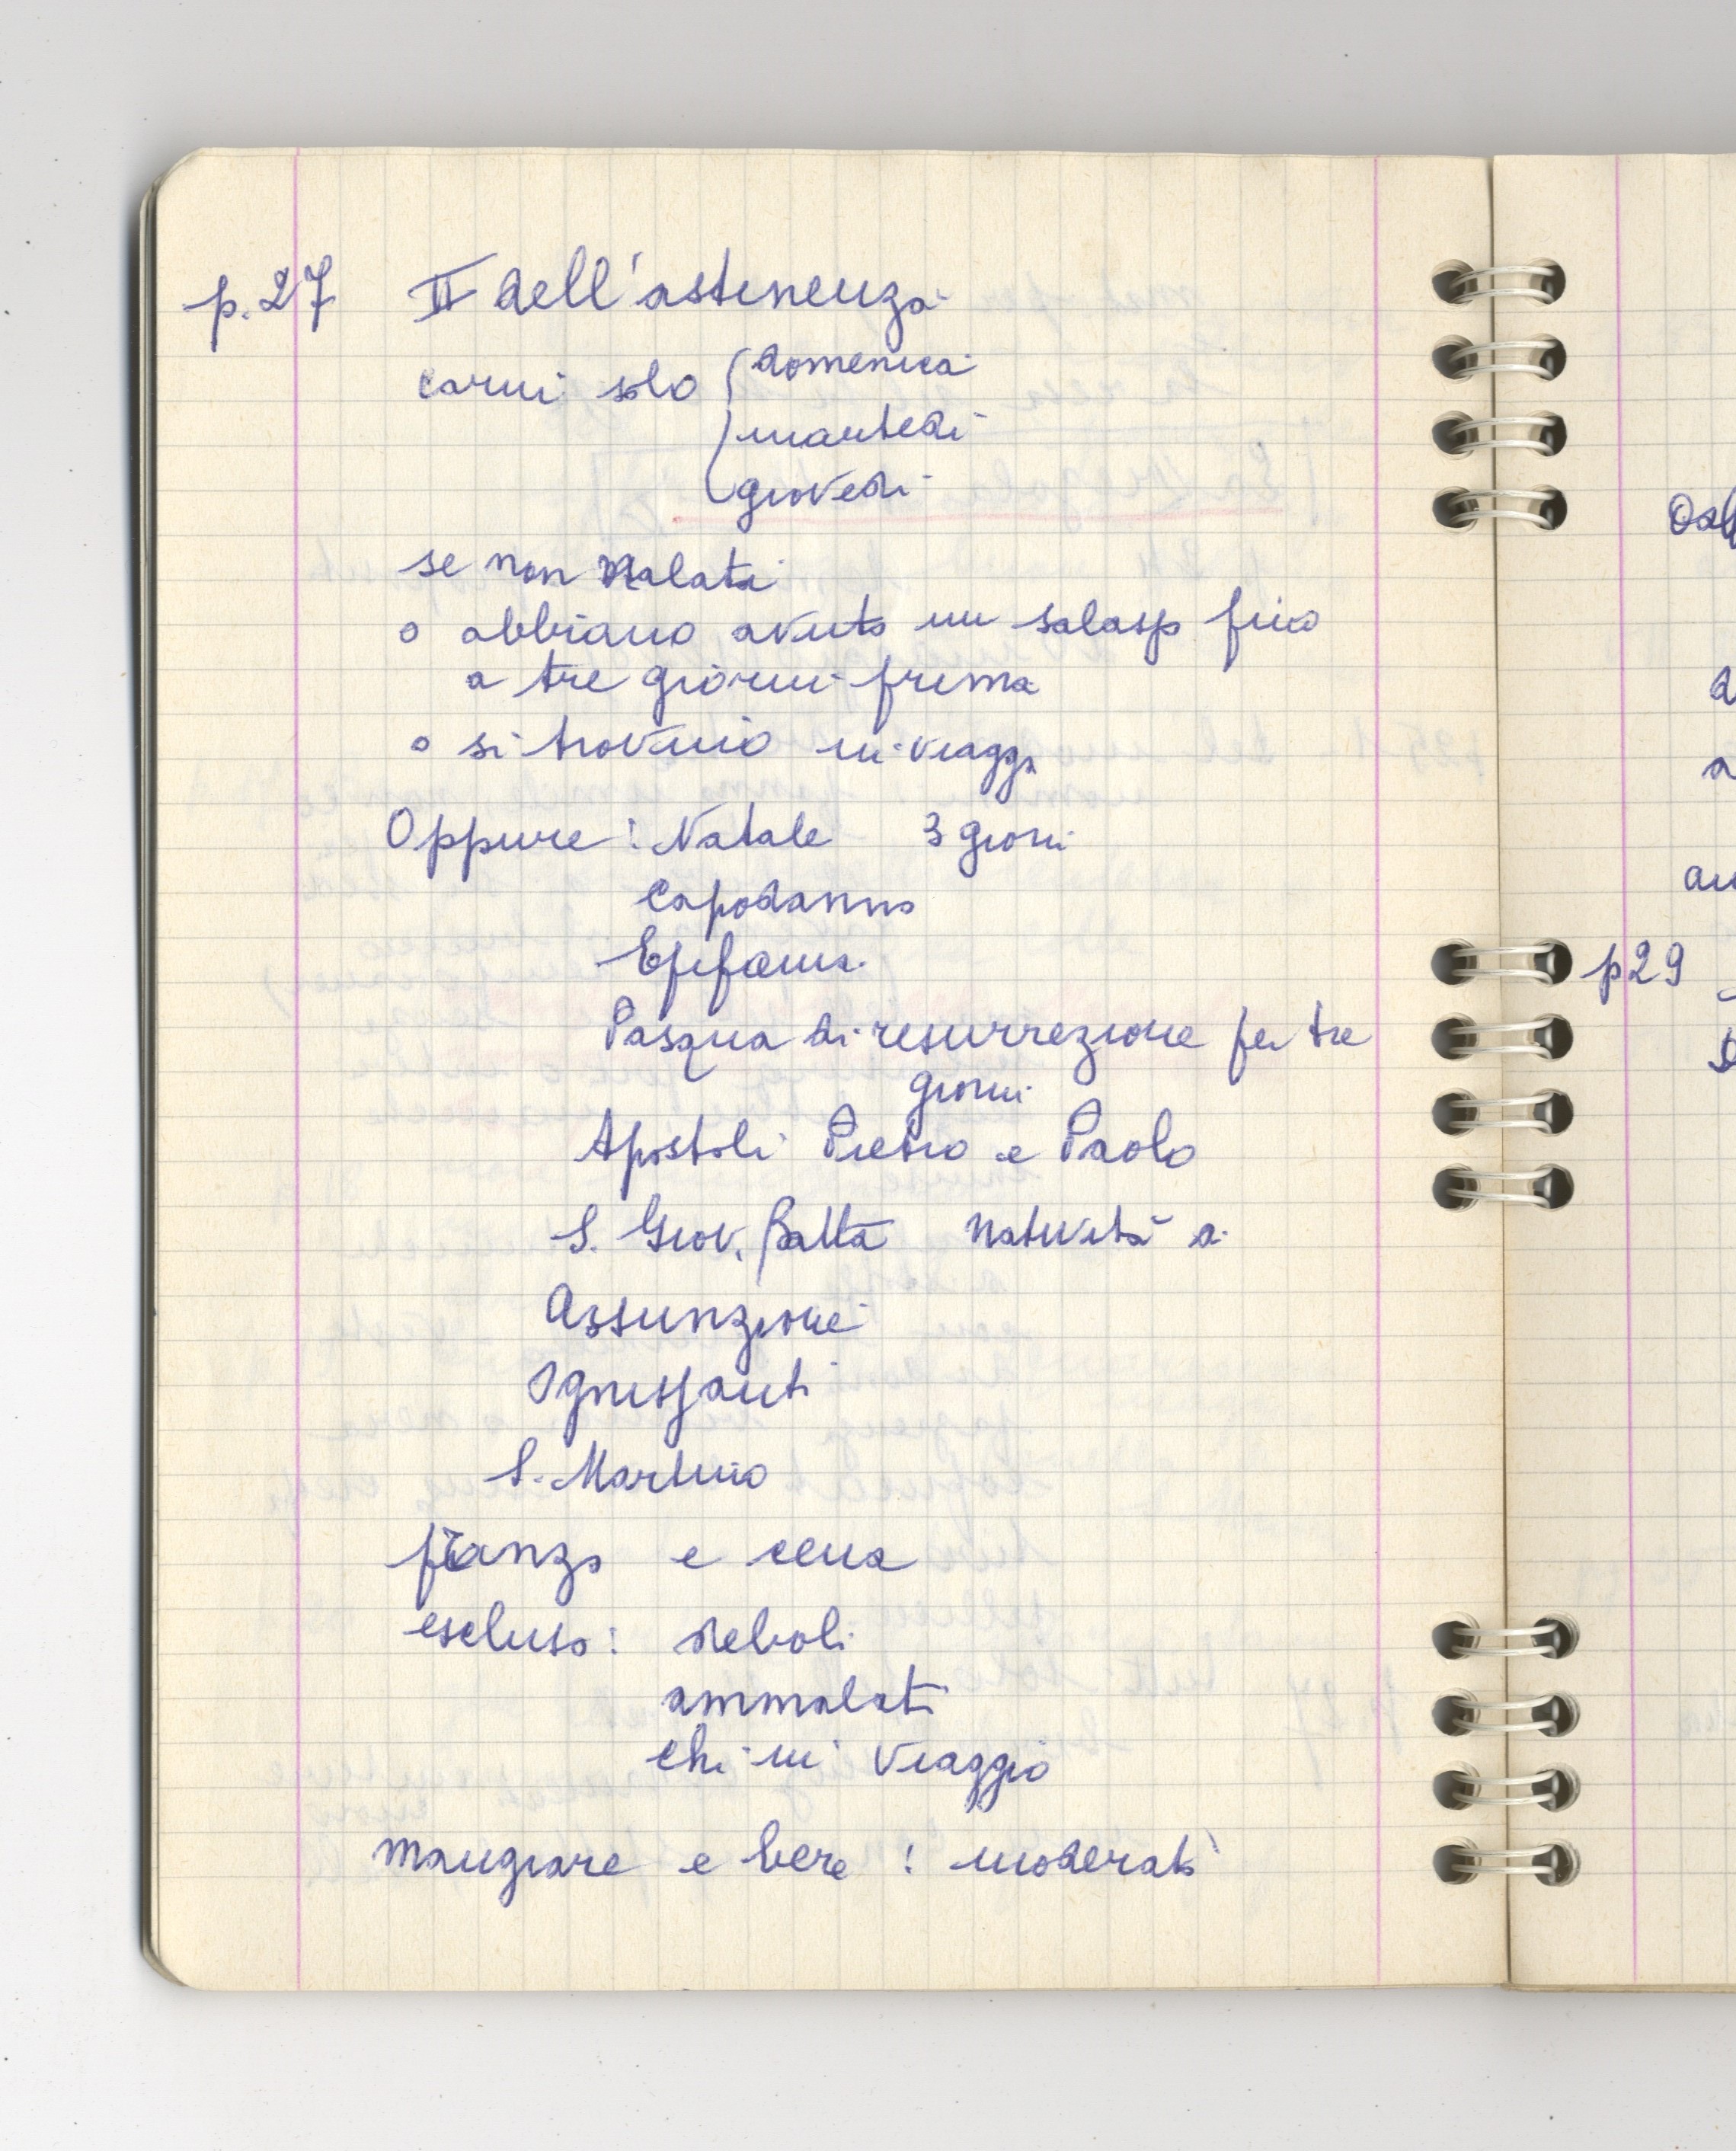 p.27 II dell'astinenza
carni solo domenica
martedi
giovedi
se non malati
o abbiano avuto un salasso fino
a tre giorni prima
o si trovino in viaggo
Oppure: Natale 3 giorni
Capodanno
Epifania
Pasqua di resurrezione per tre
giorni
Apostoli Pietro e Paolo
S. Giov. Batta Natività a.
Assunzione
Ognissanti
S. Martino
pranzo e cena
escluso: deboli
ammalati
chi in viaggio
mangiare e bere: moderato
p29